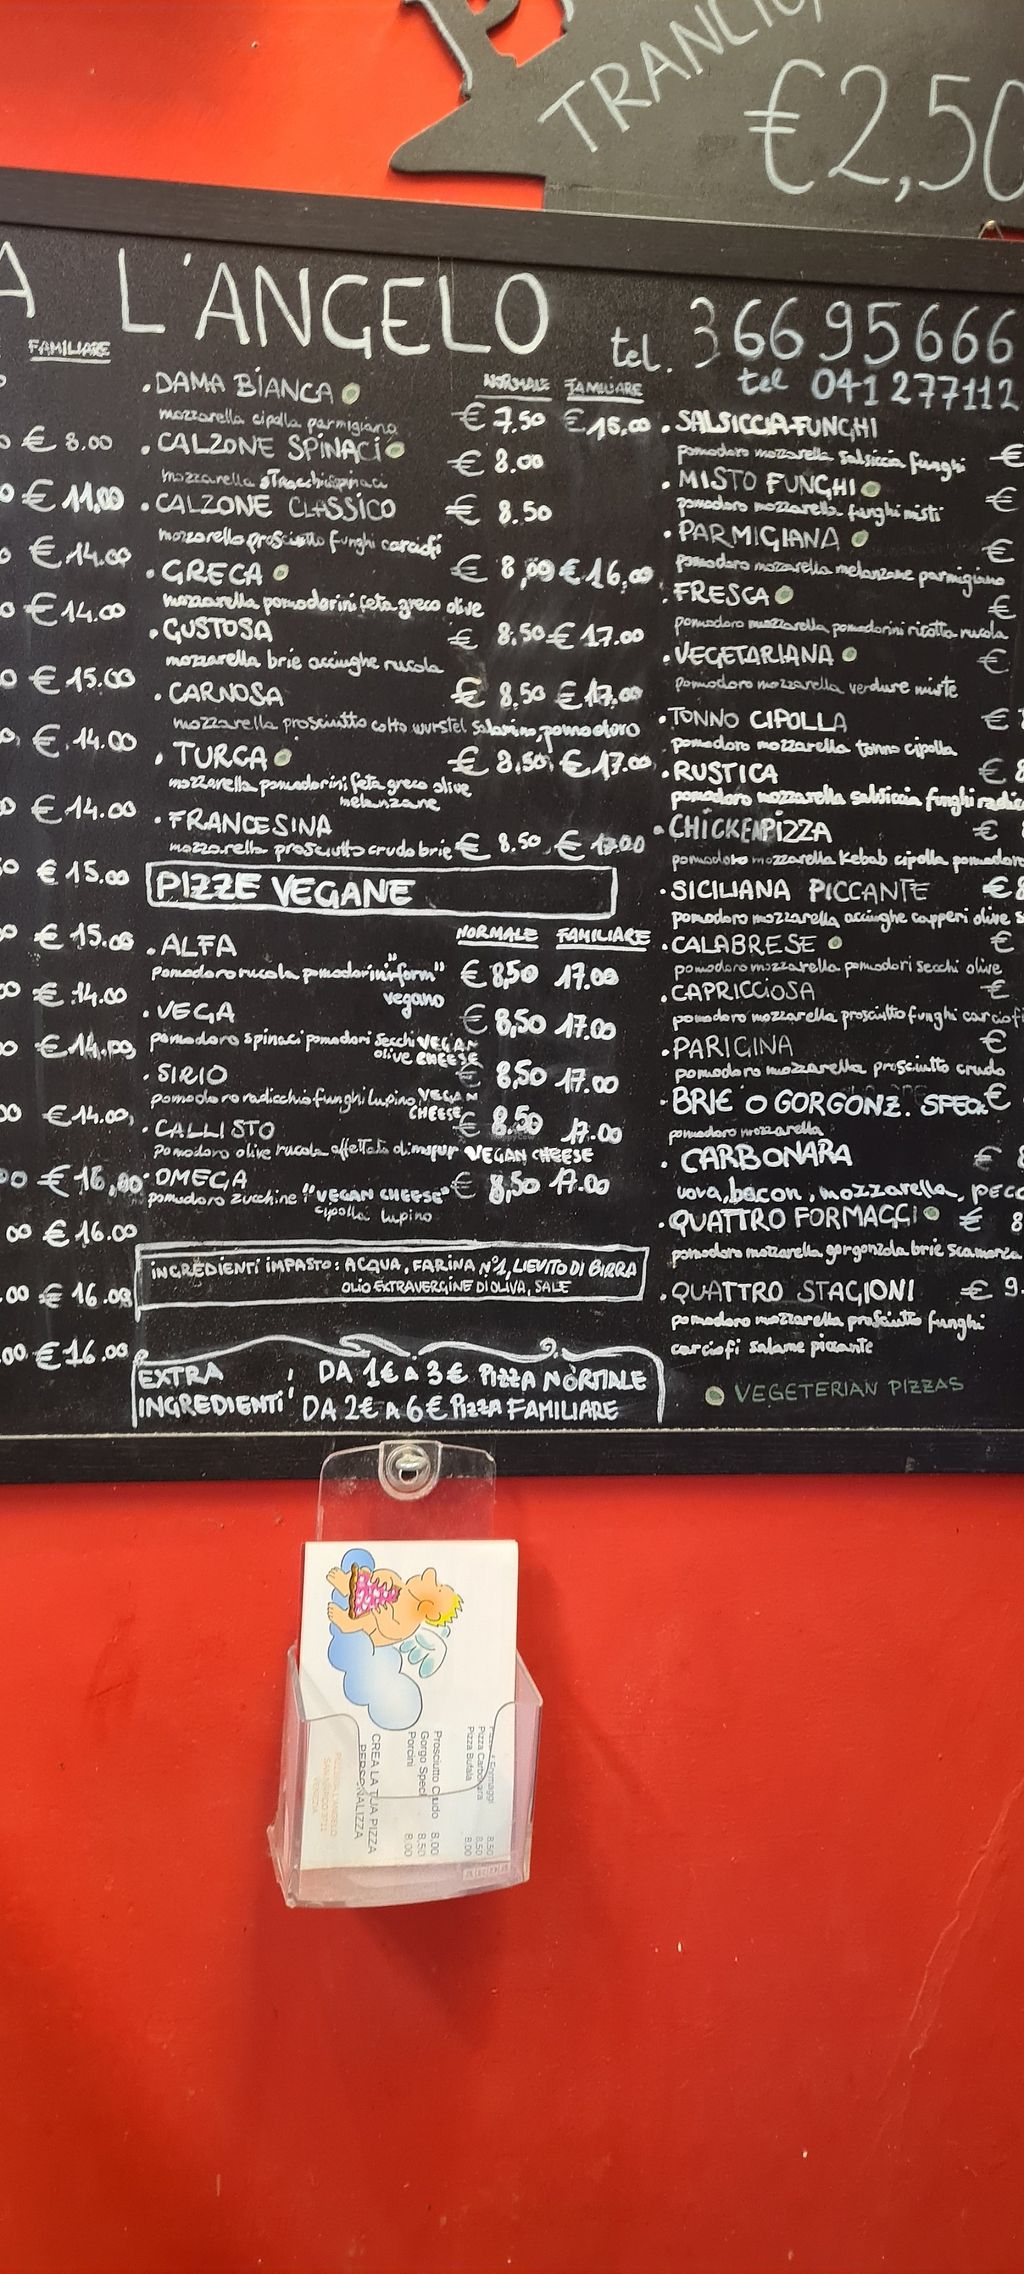 TRANCIO
€2,50
A L'ANGELO
tel. 366 95666
tel 041 277112
FAMILIARE
€ 8.00
€ 11,00
€ 14.00
€ 14.00
€ 15.00
€ 14.00
€ 14.00
€ 15.00
€ 15.00
€ 14.00
€ 14,00
€ 14.00
€ 16,00
€ 16.00
€ 16.00
€ 16.00
NORMALE FAMILIARE
. DAMA BIANCA
mozzarella cipolla parmigiano € 7.50 €
. CALZONE SPINACI
mozzarella spinaci € 8.00
. CALZONE CLASSICO
mozzarella prosciutto funghi carciofi € 8.50
. GRECA € 8,00 € 16,00
mozzarella pomodorini feta greco olive
. GUSTOSA € 8.50 € 17.00
mozzarella brie acciughe rucola
. CARNOSA € 8.50 € 17.00
mozzarella prosciutto cotto wurstel salamino, pomodoro
. TURCA € 8.50 € 17.00
mozzarella pomodorini feta greco olive
melanzane
. FRANCESINA
mozzarella prosciutto crudo brie € 8.50 € 17.00
PIZZE VEGANE
NORMALE FAMILIARE
. ALFA
pomodoro rucola pomodorini "form" € 8,50 17.00
vegano
. VEGA € 8,50 17.00
pomodoro spinaci pomodori secchi VEGAN
olive CHEESE
. SIRIO € 8,50 17.00
pomodoro radicchio funghi lupino, VEGAN
CHEESE
. CALLISTO € 8.50 17.00
pomodoro olive rucola affettato di mopur VEGAN CHEESE
. OMEGA € 8,50 17.00
pomodoro zucchine "VEGAN CHEESE"
cipolla lupino
INGREDIENTI IMPASTO: ACQUA, FARINA N°1, LIEVITO DI BIRRA
OLIO EXTRAVERGINE DI OLIVA, SALE
EXTRA : DA 1€ A 3€ PIZZA NORMALE
INGREDIENTI DA 2€ A 6€ PIZZA FAMILIARE
. SALSICCIA FUNGHI
pomodoro mozzarella salsiccia funghi €
. MISTO FUNGHI €
pomodoro mozzarella funghi misti
. PARMIGIANA €
pomodoro mozzarella melanzane parmigiano
. FRESCA €
pomodoro mozzarella pomodorini ricotta rucola
. VEGETARIANA €
pomodoro mozzarella verdure miste
. TONNO CIPOLLA €
pomodoro mozzarella tonno cipolla
. RUSTICA € 8
pomodoro mozzarella salsiccia funghi radicc
. CHICKENPIZZA €
pomodoro mozzarella kebab cipolla pomodoro
. SICILIANA PICCANTE € 8
pomodoro mozzarella acciughe capperi olive s
. CALABRESE €
pomodoro mozzarella pomodori secchi olive
. CAPRICCIOSA €
pomodoro mozzarella prosciutto funghi carciofi
. PARIGINA €
pomodoro mozzarella prosciutto crudo
. BRIE O GORGONZ. SPECK €
pomodoro mozzarella
. CARBONARA € 8
uova, bacon, mozzarella, PECO
. QUATTRO FORMAGGI € 8
pomodoro mozzarella gorgonzola brie scamorza
. QUATTRO STAGIONI € 9.
pomodoro mozzarella prosciutto funghi
carciofi salame piccante
VEGETERIAN PIZZAS
Pizza Carbonara 8.50
Pizza Bufala 8.00
Prosciutto Crudo 8.00
Gorgo Speck 8.50
Porcini 8.00
CREA LA TUA PIZZA
PERSONALIZZA
PIZZERIA L'ANGELO
VENEZIA